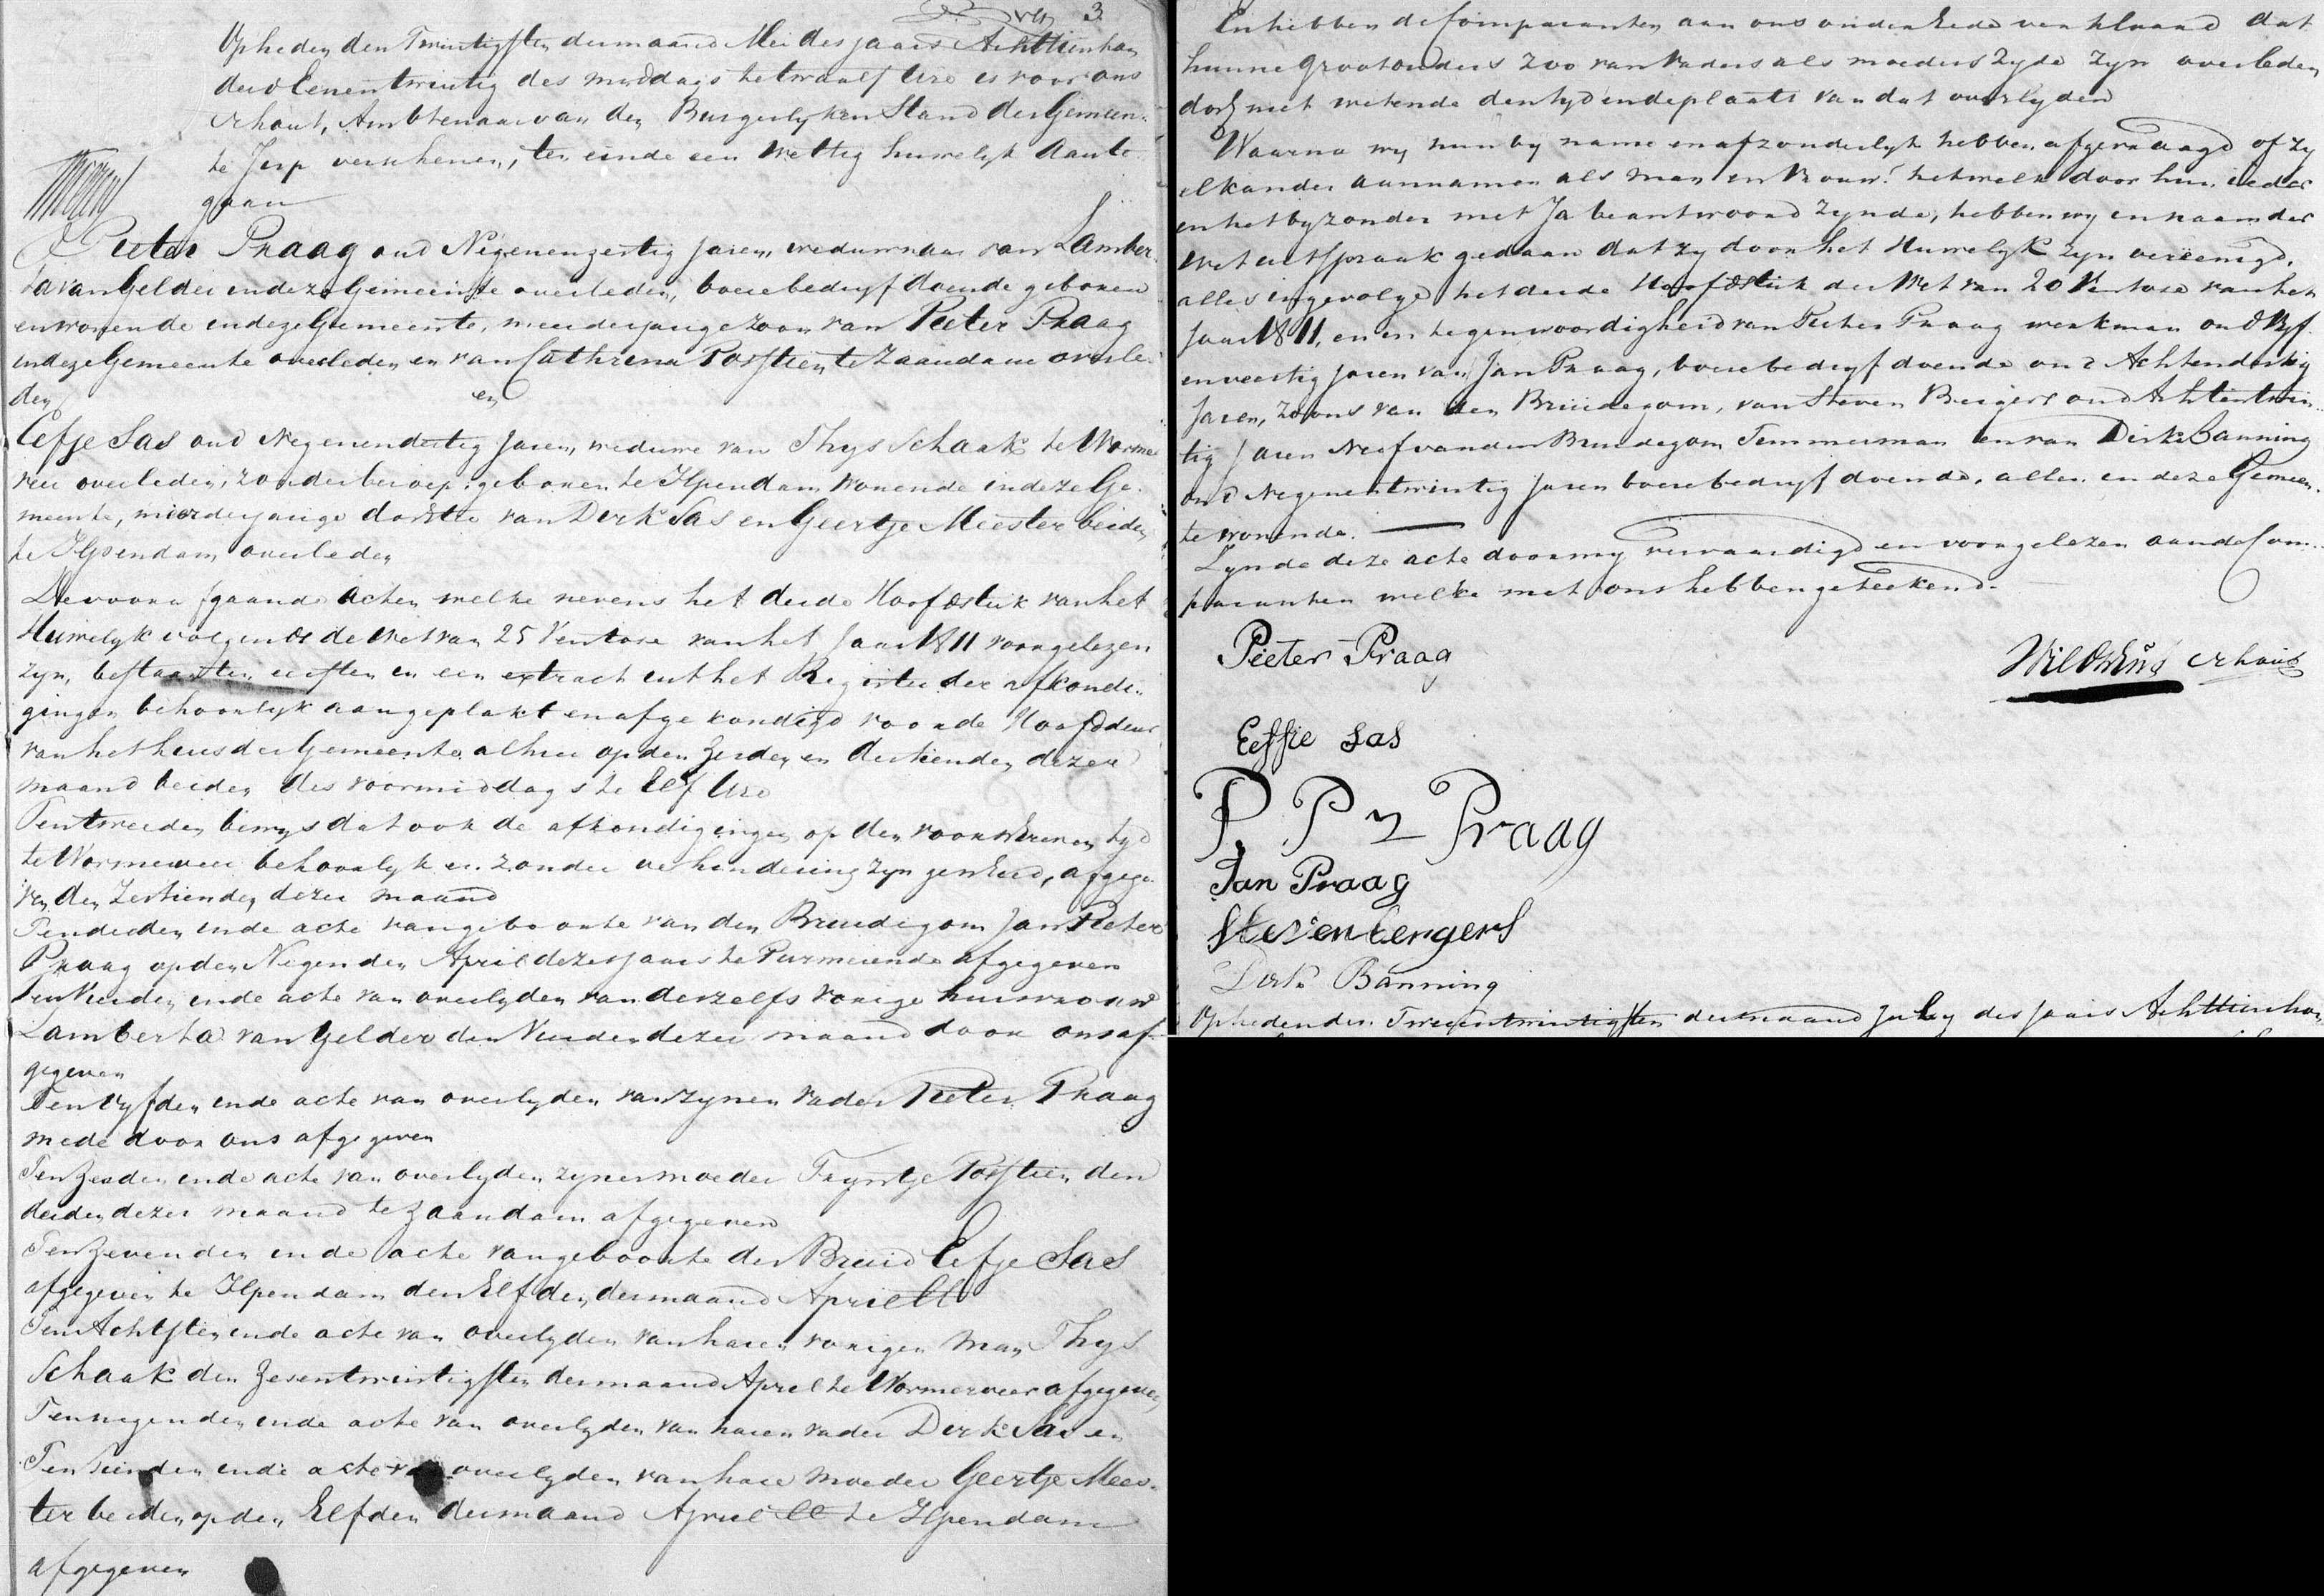 3
Op heden den Twintigsten der maand Mei des jaars Achttienhon
derd Eenentwintig des middags te twaalf Ure is voor ons
erhout, Ambtenaar van den Burgerlyken Stand der Gemeen-
te Jisp verschenen, ten einde een Wettig huwelyk aante
gaan
Pieter Praag oud Negenenzestig Jaren, weduwnaar van Lamber
ta van Gelder in deze Gemeente overleden, boerebedryf doende geboren
en wonende in deze Gemeente, meerderjarige zoon van Pieter Praag
in deze Gemeente overleden en van Cathrina Porstien te Zaandam overle
den
en
Eefje Sas oud Negenendertig Jaren, weduwe van Thys Schaak te Worme
veer overleden, zonder beroep, geboren te Ilpendam wonende in deze Ge-
meente, meerderjarige dochter van Dirk Sas en Geertje Meester beiden
te Ilpendam overleden
De voorafgaande Acten welke nevens het derde Hoofdstuk van het
Huwelyk volgends de Wet van 25 Ventose van het Jaar 1811 voorgelezen
zyn, bestaan ten eersten in een extract uit het Register der afkondi-
gingen behoorlyk aangeplakt en afgekondigd voor de Hoofddeur
van het huis der Gemeente alhier op den Zesden en dertienden dezer
maand beiden des voormiddags te Elf Ure
Ten tweeden bewys dat ook de afkondigingen op den voorschreven tyd
te Wormerveer behoorlyk en zonder verhindering zyn geschied, afgege-
ven den Zestienden dezer maand
Ten derden in de acte van geboorte van den Bruidegom Jan Pieter
Praag op den Negenden April dezes jaars te Purmerende afgegeven
Ten Vierden in de acte van overlyden van deszelfs vorige huisvrouw
Lamberta van Gelder den Vierden dezer maand door ons af-
gegeven
Ten Vyfden in de acte van overlyden van zynen vader Pieter Praag
mede door ons afgegeven
Ten Zesden in de acte van overlyden zyner moeder Tryntje Porstien den
derden dezer maand te Zaandam afgegeven
Ten Zevenden in de acte van geboorte der Bruid Eefje Sas
afgegeven te Ilpendam den Elfden der maand April ll
Ten Achtsten in de acte van overlyden van haren vorigen man Thys
Schaak den Zesentwintigsten der maand April te Wormerveer afgegeven
Ten negenden in de acte van overlyden van haren vader Dirk Sas en
Ten tienden in de acte van overlyden van hare moeder Geertje Mees-
ter beiden op den Elfden der maand April ll te Ilpendam
afgegeven
En hebben de Comparanten aan ons onder Eede verklaard dat
hunne Grootouders zoo van vaders als moeders zyde zyn overleden
doch niet wetende den tyd en de plaats van dat overlyden
Waarna wy hun by name en afzonderlyk hebben afgevraagd of zy
elkander aannamen als Man en Vrouw? hetwelk door hun ieder
in het byzonder met Ja beantwoord zynde, hebben wy in naam der
Wet uitspraak gedaan dat zy door het Huwelyk zyn vereenigd,
alles ingevolge het derde Hoofdstuk der Wet van 20 Ventose van het
Jaar 1811, en in tegenwoordigheid van Pieter Praag werkman oud Vyf
en veertig jaren van Jan Praag, boerebedryf doende oud Achtendertig
Jaren, Zoons van den Bruidegom, van Steven Bengers oud Achtentwin
tig Jaren Neef van den Bruidegom Temmerman en van Dirk Banning
oud Negenentwintig Jaren boerebedryf doende, allen in deze Gemeen-
te wonende.
Zynde deze acte door my vervaardigd en voorgelezen aan de Com-
paranten welke met ons hebben geteekend.
Pieter Praag
erhout
Eeffie Sas
P. P z Praag
Jan Praag
Steven bengers
Dirk Banning
Op heden den Tweeentwintigsten der maand July des jaars Achttienhon